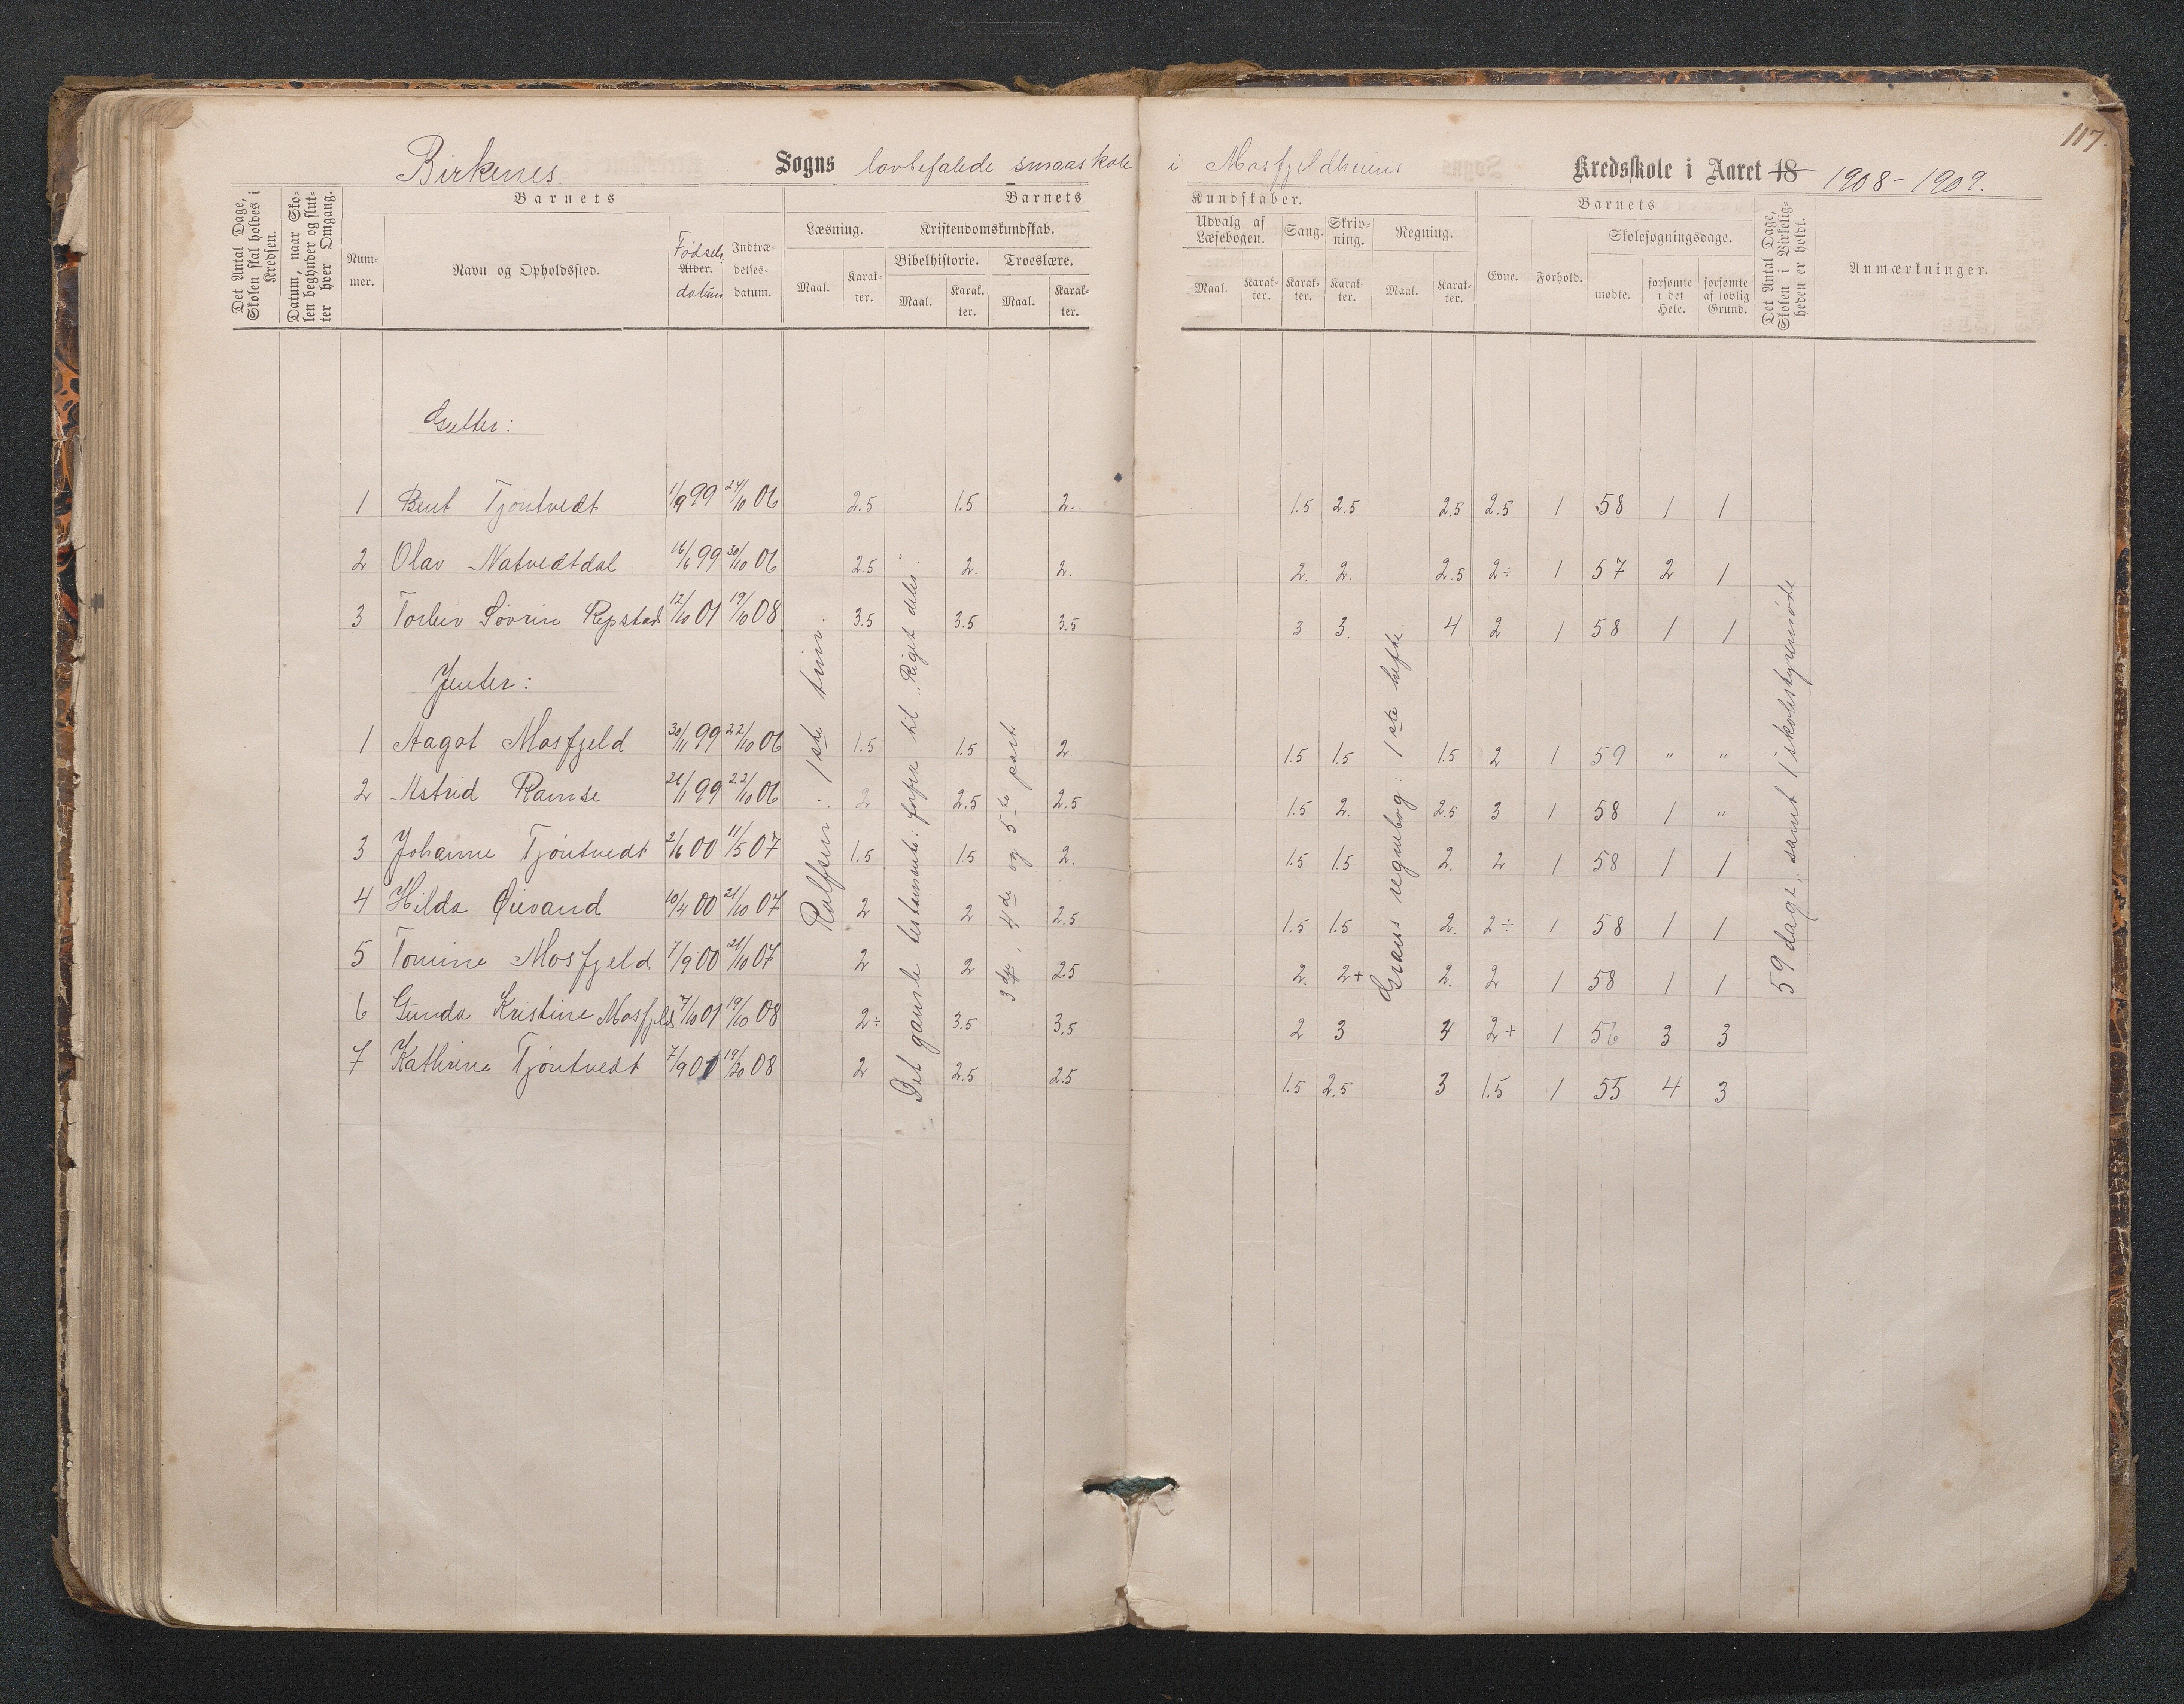 117.
Birkenes Sogns lovbefalede smaaskole i Mosfjeldheiens Kredsskole i Aaret 18 1908-1909.
Det Antal Dage, Skolen skal holdes i Kredsen.
Datum, naar Skolen begynder og slutter hver Omgang.
Barnets
Nummer.
Navn og Opholdssted.
Alder. Fødselsdatum
Indtrædelsesdatum.
Barnets Kundskaber.
Læsning.
Maal. Karakter.
Kristendomskundskab.
Bibelhistorie. Troeslære.
Maal. Karakter. Maal. Karakter.
Udvalg af Læsebogen.
Maal. Karakter.
Sang. Karakter.
Skrivning. Karakter.
Regning.
Maal. Karakter.
Barnets
Evne. Forhold.
Skolesøgningsdage.
mødte. forsømte i det Hele. forsømte af lovlig Grund.
Det Antal Dage, Skolen i Virkeligheden er holdt.
Anmærkninger.
Gutter:
1 Bent Tjöntvedt 1/9 99 24/10 06 2.5 1.5 2. 1.5 2.5 2.5 2.5 1 58 1 1
2 Olav Natvedtdal 16/6 99 30/10 06 2.5 2. 2. 2. 2. 2.5 2÷ 1 57 2 1
3 Torleiv Sövrin Repstad 12/10 01 19/10 08 3.5 3.5 3.5 3 3. 4 2 1 58 1 1
Jenter:
1 Aagot Mosfjeld 30/11 99 22/10 06 1.5 1.5 2 1.5 1.5 1.5 2 1 59 " "
2 Astrid Ramse 26/11 99 22/10 06 2 2.5 2.5 1.5 2. 2.5 3 1 58 1 "
3 Johanne Tjöntvedt 2/6 00 11/5 07 1.5 1.5 2. 1.5 1.5 2. 2 1 58 1 1
4 Hilda Øievand 10/4 00 21/10 07 2 2 2.5 1.5 1.5 2. 2÷ 1 58 1 1
5 Tomine Mosfjeld 7/9 00 21/10 07 2 2 2.5 2. 2+ 2. 2 1 58 1 1
6 Gunda Kristine Mosfjeld 7/10 01 19/10 08 2÷ 3.5 3.5 2 3 4 2+ 1 56 3 3
7 Kathrine Tjöntvedt 7/9 01 19/20 08 2 2.5 2.5 1.5 2.5 3 1.5 1 55 4 3
Rolfsen: 1ste trin.
Det gamle testamente: forfra til "Riget deles".
3die, 4de og 5te part
Græns regnebog: 1ste hefte.
59 dage, samt 1 skolestyremöde